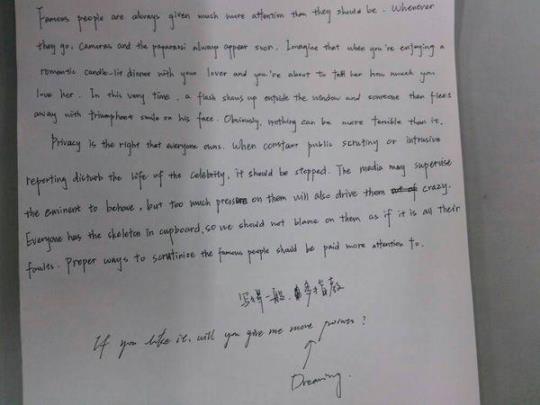 Famous people are always given much more attention than they should be. Whenever
they go, cameras and the paparazzi always appear soon. Imagine that when you're enjoying a
romantic candle-lit dinner with your lover and you're about to tell her how much you
love her. In this very time, a flash shows up outside the window and someone then flees
away with triumphant smile on his face. Obviously, nothing can be more terrible than it.
Privacy is the right that everyone owns. When constant public scrutiny or intrusive
reporting disturb the life of the celebrity, it should be stopped. The media may supervise
the eminent to behave, but too much press on them will also drive them crazy.
Everyone has the skeleton in cupboard, so we should not blame on them as if it is all their
foules. Proper ways to scrutinize the famous people should be paid more attention to.
写得一般，多多指教
If you like it, will you give me more?
Dreaming.